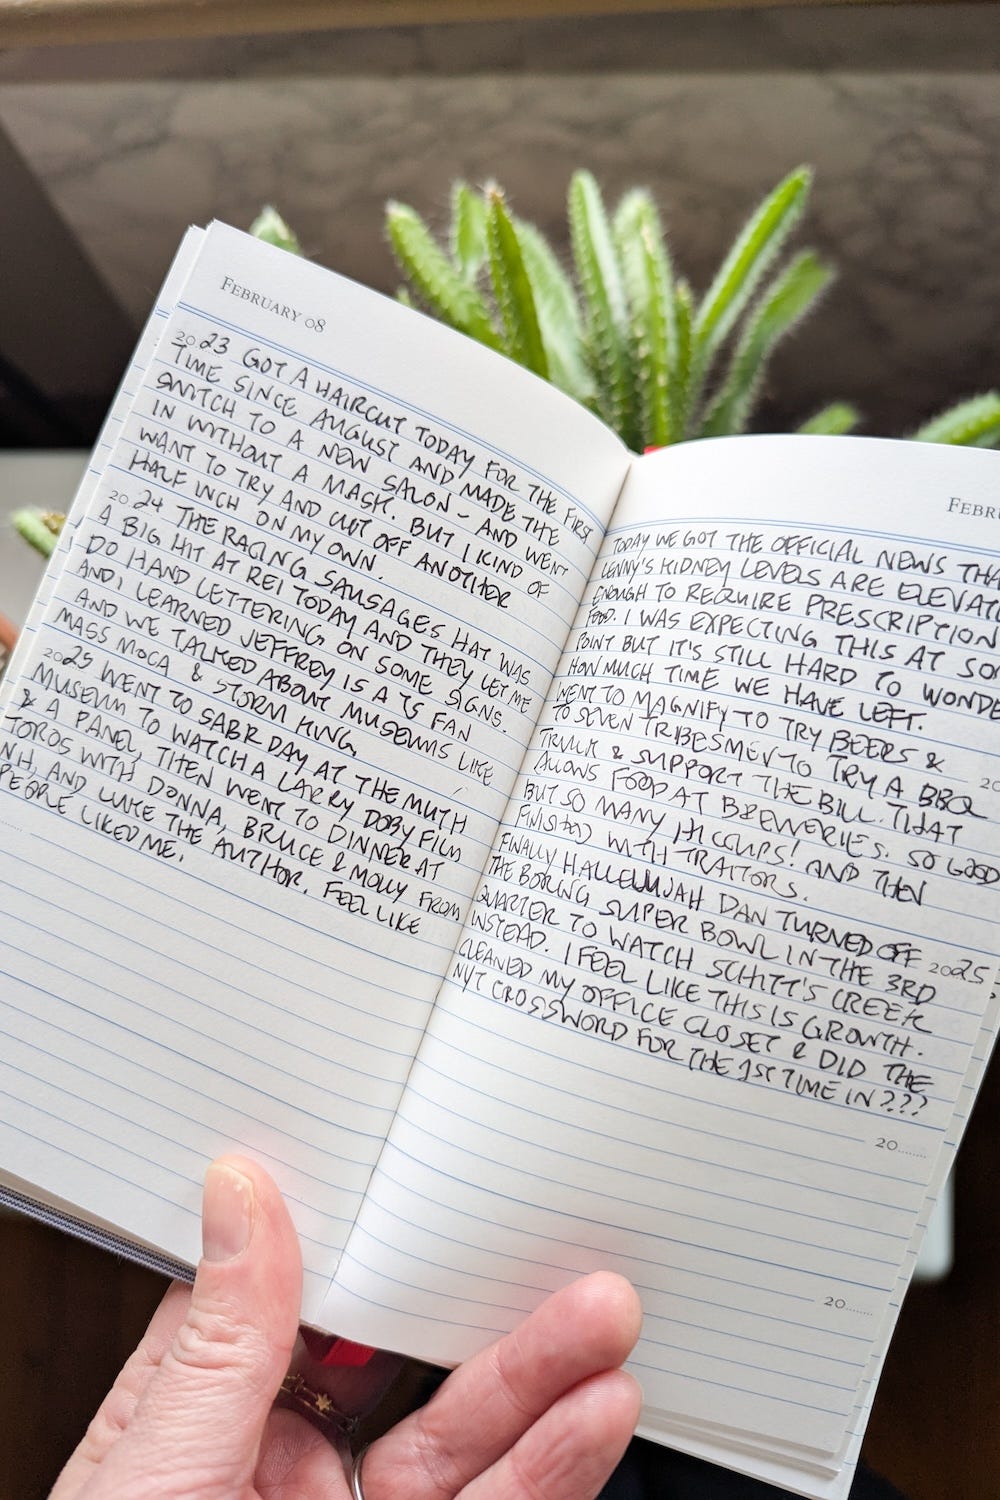 FEBRUARY 08
2023 GOT A HAIRCUT TODAY FOR THE FIRST
TIME SINCE AUGUST AND MADE THE
SWITCH TO A NEW SALON - AND WENT
IN WITHOUT A MASK. BUT I KIND OF
WANT TO TRY AND CUT OFF ANOTHER
HALF INCH ON MY OWN.
2024 THE RACING SAUSAGES HAT WAS
A BIG HIT AT REI TODAY AND THEY LET ME
DO HAND LETTERING ON SOME SIGNS.
AND, I LEARNED JEFFREY IS A TS FAN
AND WE TALKED ABOUT MUSEUMS LIKE
MASS MOCA & STORM KING.
2025 WENT TO SABR DAY AT THE MUTH
MUSEUM TO WATCH A LARRY DOBY FILM
& A PANEL, THEN WENT TO DINNER AT
TOROS WITH DONNA, BRUCE & MOLLY FROM
NH, AND LUKE THE AUTHOR. FEEL LIKE
PEOPLE LIKED ME.
FEBRU
TODAY WE GOT THE OFFICIAL NEWS THA
LENNY'S KIDNEY LEVELS ARE ELEVAT
ENOUGH TO REQUIRE PRESCRIPTION
FOOD. I WAS EXPECTING THIS AT SOM
POINT BUT IT'S STILL HARD TO WONDE
HOW MUCH TIME WE HAVE LEFT.
WENT TO MAGNIFY TO TRY BEERS & 20
TO SEVEN TRIBESMEN TO TRY A BBQ
TRUCK & SUPPORT THE BILL THAT
ALLOWS FOOD AT BREWERIES. SO GOOD
BUT SO MANY HICCUPS! AND THEN
FINISHED WITH TRAITORS.
FINALLY HALLELUJAH DAN TURNED OFF 2025
THE BORING SUPER BOWL IN THE 3RD
QUARTER TO WATCH SCHITT'S CREEK
INSTEAD. I FEEL LIKE THIS IS GROWTH.
CLEANED MY OFFICE CLOSET & DID THE
NYT CROSSWORD FOR THE 1ST TIME IN ???
20
20